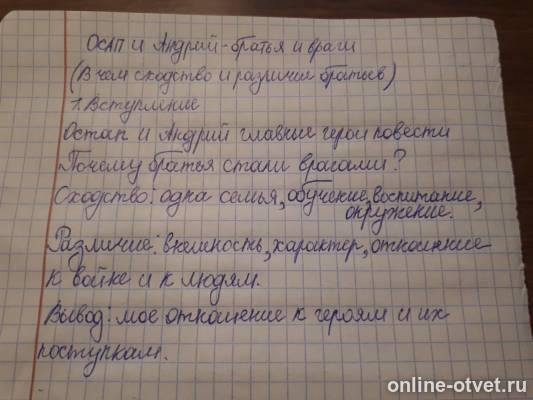 ОСАП и Андрий-братья и враги
(В чем сходство и различие братьев)
1. Вступление
Остап и Андрий главные герои повести
Почему братья стали врагами?
Сходство: одна семья, обучение, воспитание,
окружение.
Различие: внешность, характер, отношение
к войне и к людям.
Вывод: мое отношение к героям и их
поступкам.
online-otvet.ru